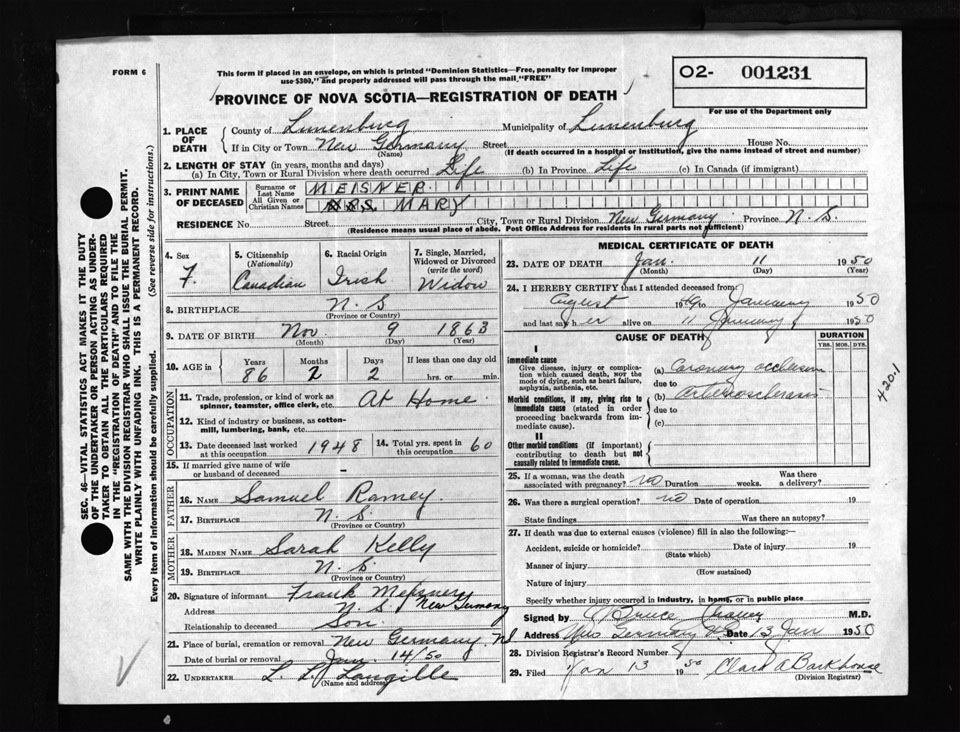 FORM 6
This form if placed in an envelope, on which is printed "Dominion Statistics—Free, penalty for improper
use $300," and properly addressed will pass through the mail "FREE"
O2- 001231
For use of the Department only
PROVINCE OF NOVA SCOTIA—REGISTRATION OF DEATH
1. PLACE OF DEATH
County of Lunenburg Municipality of Lunenburg
If in City or Town New Germany Street House No.
(Name) (If death occurred in a hospital or institution, give the name instead of street and number)
2. LENGTH OF STAY (in years, months and days)
(a) In City, Town or Rural Division where death occurred Life (b) In Province Life (c) In Canada (if immigrant)
3. PRINT NAME OF DECEASED
Surname or Last Name MEISNER
All Given or Christian Names MARY
RESIDENCE No. Street City, Town or Rural Division New Germany Province N.S.
(Residence means usual place of abode. Post Office Address for residents in rural parts not sufficient)
SEC. 46—VITAL STATISTICS ACT MAKES IT THE DUTY
OF THE UNDERTAKER OR PERSON ACTING AS UNDER-
TAKER TO OBTAIN ALL THE PARTICULARS REQUIRED
IN THE "REGISTRATION OF DEATH" AND TO FILE THE
SAME WITH THE DIVISION REGISTRAR WHO SHALL ISSUE THE BURIAL PERMIT.
WRITE PLAINLY WITH UNFADING INK. THIS IS A PERMANENT RECORD.
Every item of information should be carefully supplied. (See reverse side for instructions.)
4. Sex F.
5. Citizenship (Nationality) Canadian
6. Racial Origin Irish
7. Single, Married, Widowed or Divorced (write the word) Widow
8. BIRTHPLACE N.S
(Province or Country)
9. DATE OF BIRTH Nov 9 1863
(Month) (Day) (Year)
10. AGE in Years 86 Months 2 Days 2 If less than one day old hrs. or min.
OCCUPATION
11. Trade, profession, or kind of work as
spinner, teamster, office clerk, etc. At Home
12. Kind of industry or business, as cotton-
mill, lumbering, bank, etc.
13. Date deceased last worked at this occupation 1948 14. Total yrs. spent in this occupation 60
15. If married give name of wife
or husband of deceased -
FATHER
16. NAME Samuel Ramey.
17. BIRTHPLACE N.S
(Province or Country)
MOTHER
18. MAIDEN NAME Sarah Kelly
19. BIRTHPLACE N.S.
(Province or Country)
20. Signature of informant Frank
Address N.S New Germany
Relationship to deceased Son.
21. Place of burial, cremation or removal New Germany NS
Date of burial or removal Jan. 14/50
22. UNDERTAKER L. L. Langille
(Name and address)
MEDICAL CERTIFICATE OF DEATH
23. DATE OF DEATH Jan. 11 1950
(Month) (Day) (Year)
24. I HEREBY CERTIFY that I attended deceased from
August 19 to January 1950
and last saw her alive on 11 January 1950
CAUSE OF DEATH DURATION
YRS. MOS. DYS.
I
Immediate cause
Give disease, injury or complica-
tion which caused death, not the
mode of dying, such as heart failure,
asphyxia, asthenia, etc.
(a) Coronary occlusion
due to
Morbid conditions, if any, giving rise to
immediate cause (stated in order
proceeding backwards from im-
mediate cause).
(b) Arteriosclerosis
due to
(c)
4201
II
Other morbid conditions (if important)
contributing to death but not
causally related to immediate cause.
25. If a woman, was the death associated with pregnancy? no Duration weeks. Was there a delivery?
26. Was there a surgical operation? no Date of operation 19
State findings Was there an autopsy?
27. If death was due to external causes (violence) fill in also the following:—
Accident, suicide or homicide? Date of injury 19
(State which)
Manner of injury
(How sustained)
Nature of injury
Specify whether injury occurred in industry, in home, or in public place
Signed by Bruce M.D.
Address New Germany N.S. Date 13 Jan 1950
28. Division Registrar's Record Number
29. Filed Jan 13 1950 Clara A Barkhouse
(Division Registrar)